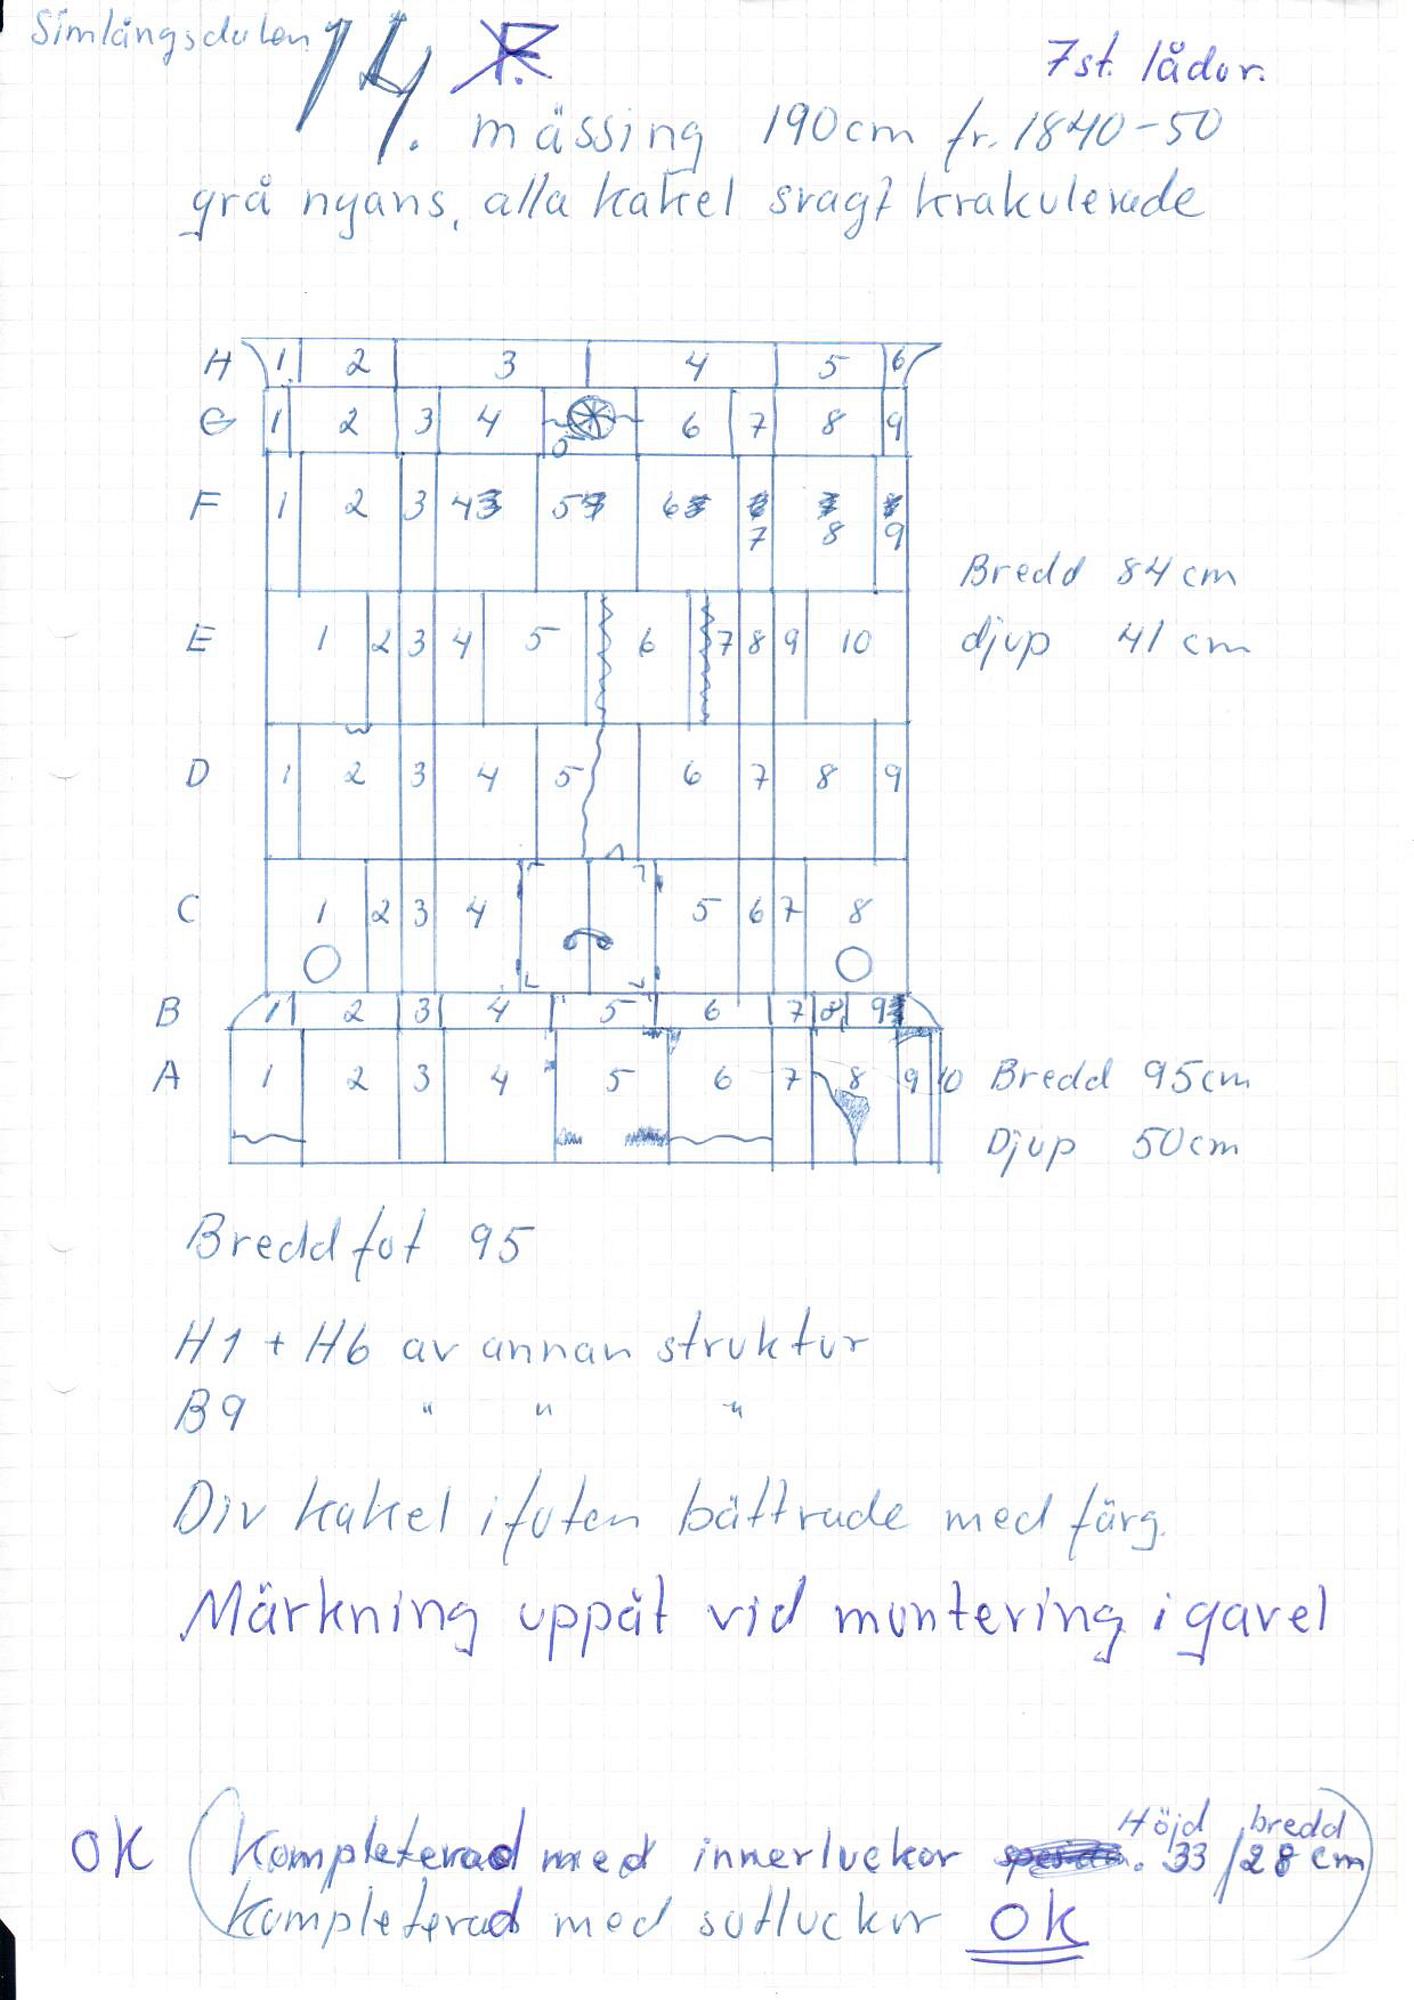 Simlångsdalen
14.
7st. lådor.
mässing 190cm fr. 1840-50
grå nyans, alla kakel svagt krakulerade
H 1 2 3 4 5 6
G 1 2 3 4 5 6 7 8 9
F 1 2 3 4 5 6 7 8 9
Bredd 84 cm
E 1 2 3 4 5 6 7 8 9 10
djup 41 cm
D 1 2 3 4 5 6 7 8 9
C 1 2 3 4 5 6 7 8
B 1 2 3 4 5 6 7 8 9
A 1 2 3 4 5 6 7 8 9 10
Bredd 95cm
Djup 50cm
Bredd fot 95
H1 + H6 av annan struktur
B9 " " "
Div kakel i foten bättrade med färg.
Märkning uppåt vid montering i gavel
OK (Kompleterad med innerluckor . Höjd 33 / bredd 28 cm)
Kompleterad med sotluckor OK